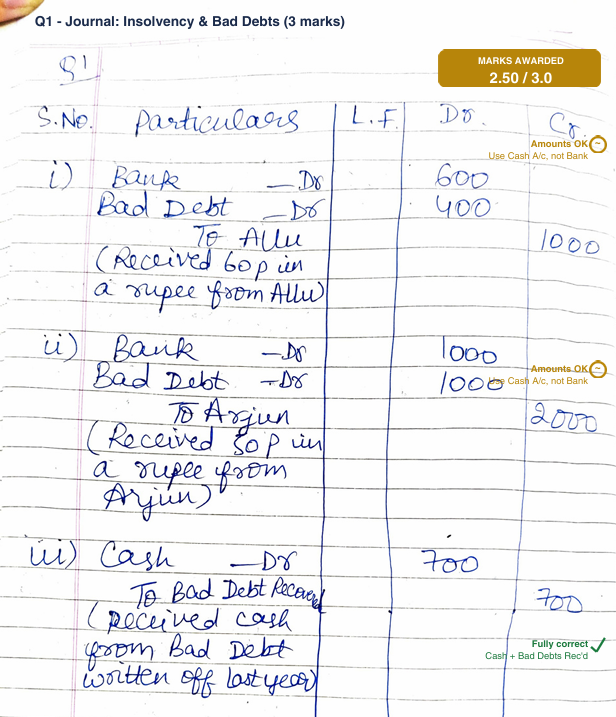 Q1 - Journal: Insolvency & Bad Debts (3 marks)
MARKS AWARDED
2.50 / 3.0
Q1
S.No. Particulars L.F. Dr. Cr.
Amounts OK ~
Use Cash A/c, not Bank
i) Bank — Dr 600
Bad Debt — Dr 400
To Allu 1000
(Received 60 p in
a rupee from Allu)
ii) Bank — Dr 1000
Amounts OK ~
Use Cash A/c, not Bank
Bad Debt — Dr 1000
To Arjun 2000
(Received 50 P in
a rupee from
Arjun)
iii) Cash — Dr 700
To Bad Debt Recovered 700
(received cash
from Bad Debt
written off last year)
Fully correct ✓
Cash + Bad Debts Rec'd